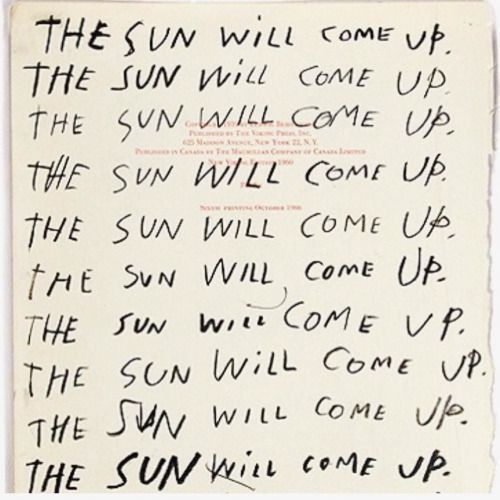 THE SUN WILL COME UP.
THE SUN WILL COME UP.
THE SUN WILL COME UP.
PUBLISHED BY THE VIKING PRESS, INC.
625 MADISON AVENUE, NEW YORK 22, N.Y.
PUBLISHED IN CANADA BY THE MACMILLAN COMPANY OF CANADA LIMITED
1960
THE SUN WILL COME UP.
SIXTH PRINTING OCTOBER
THE SUN WILL COME UP.
THE SUN WILL COME UP.
THE SUN WILL COME UP.
THE SUN WILL COME UP.
THE SUN WILL COME UP.
THE SUN WILL COME UP.